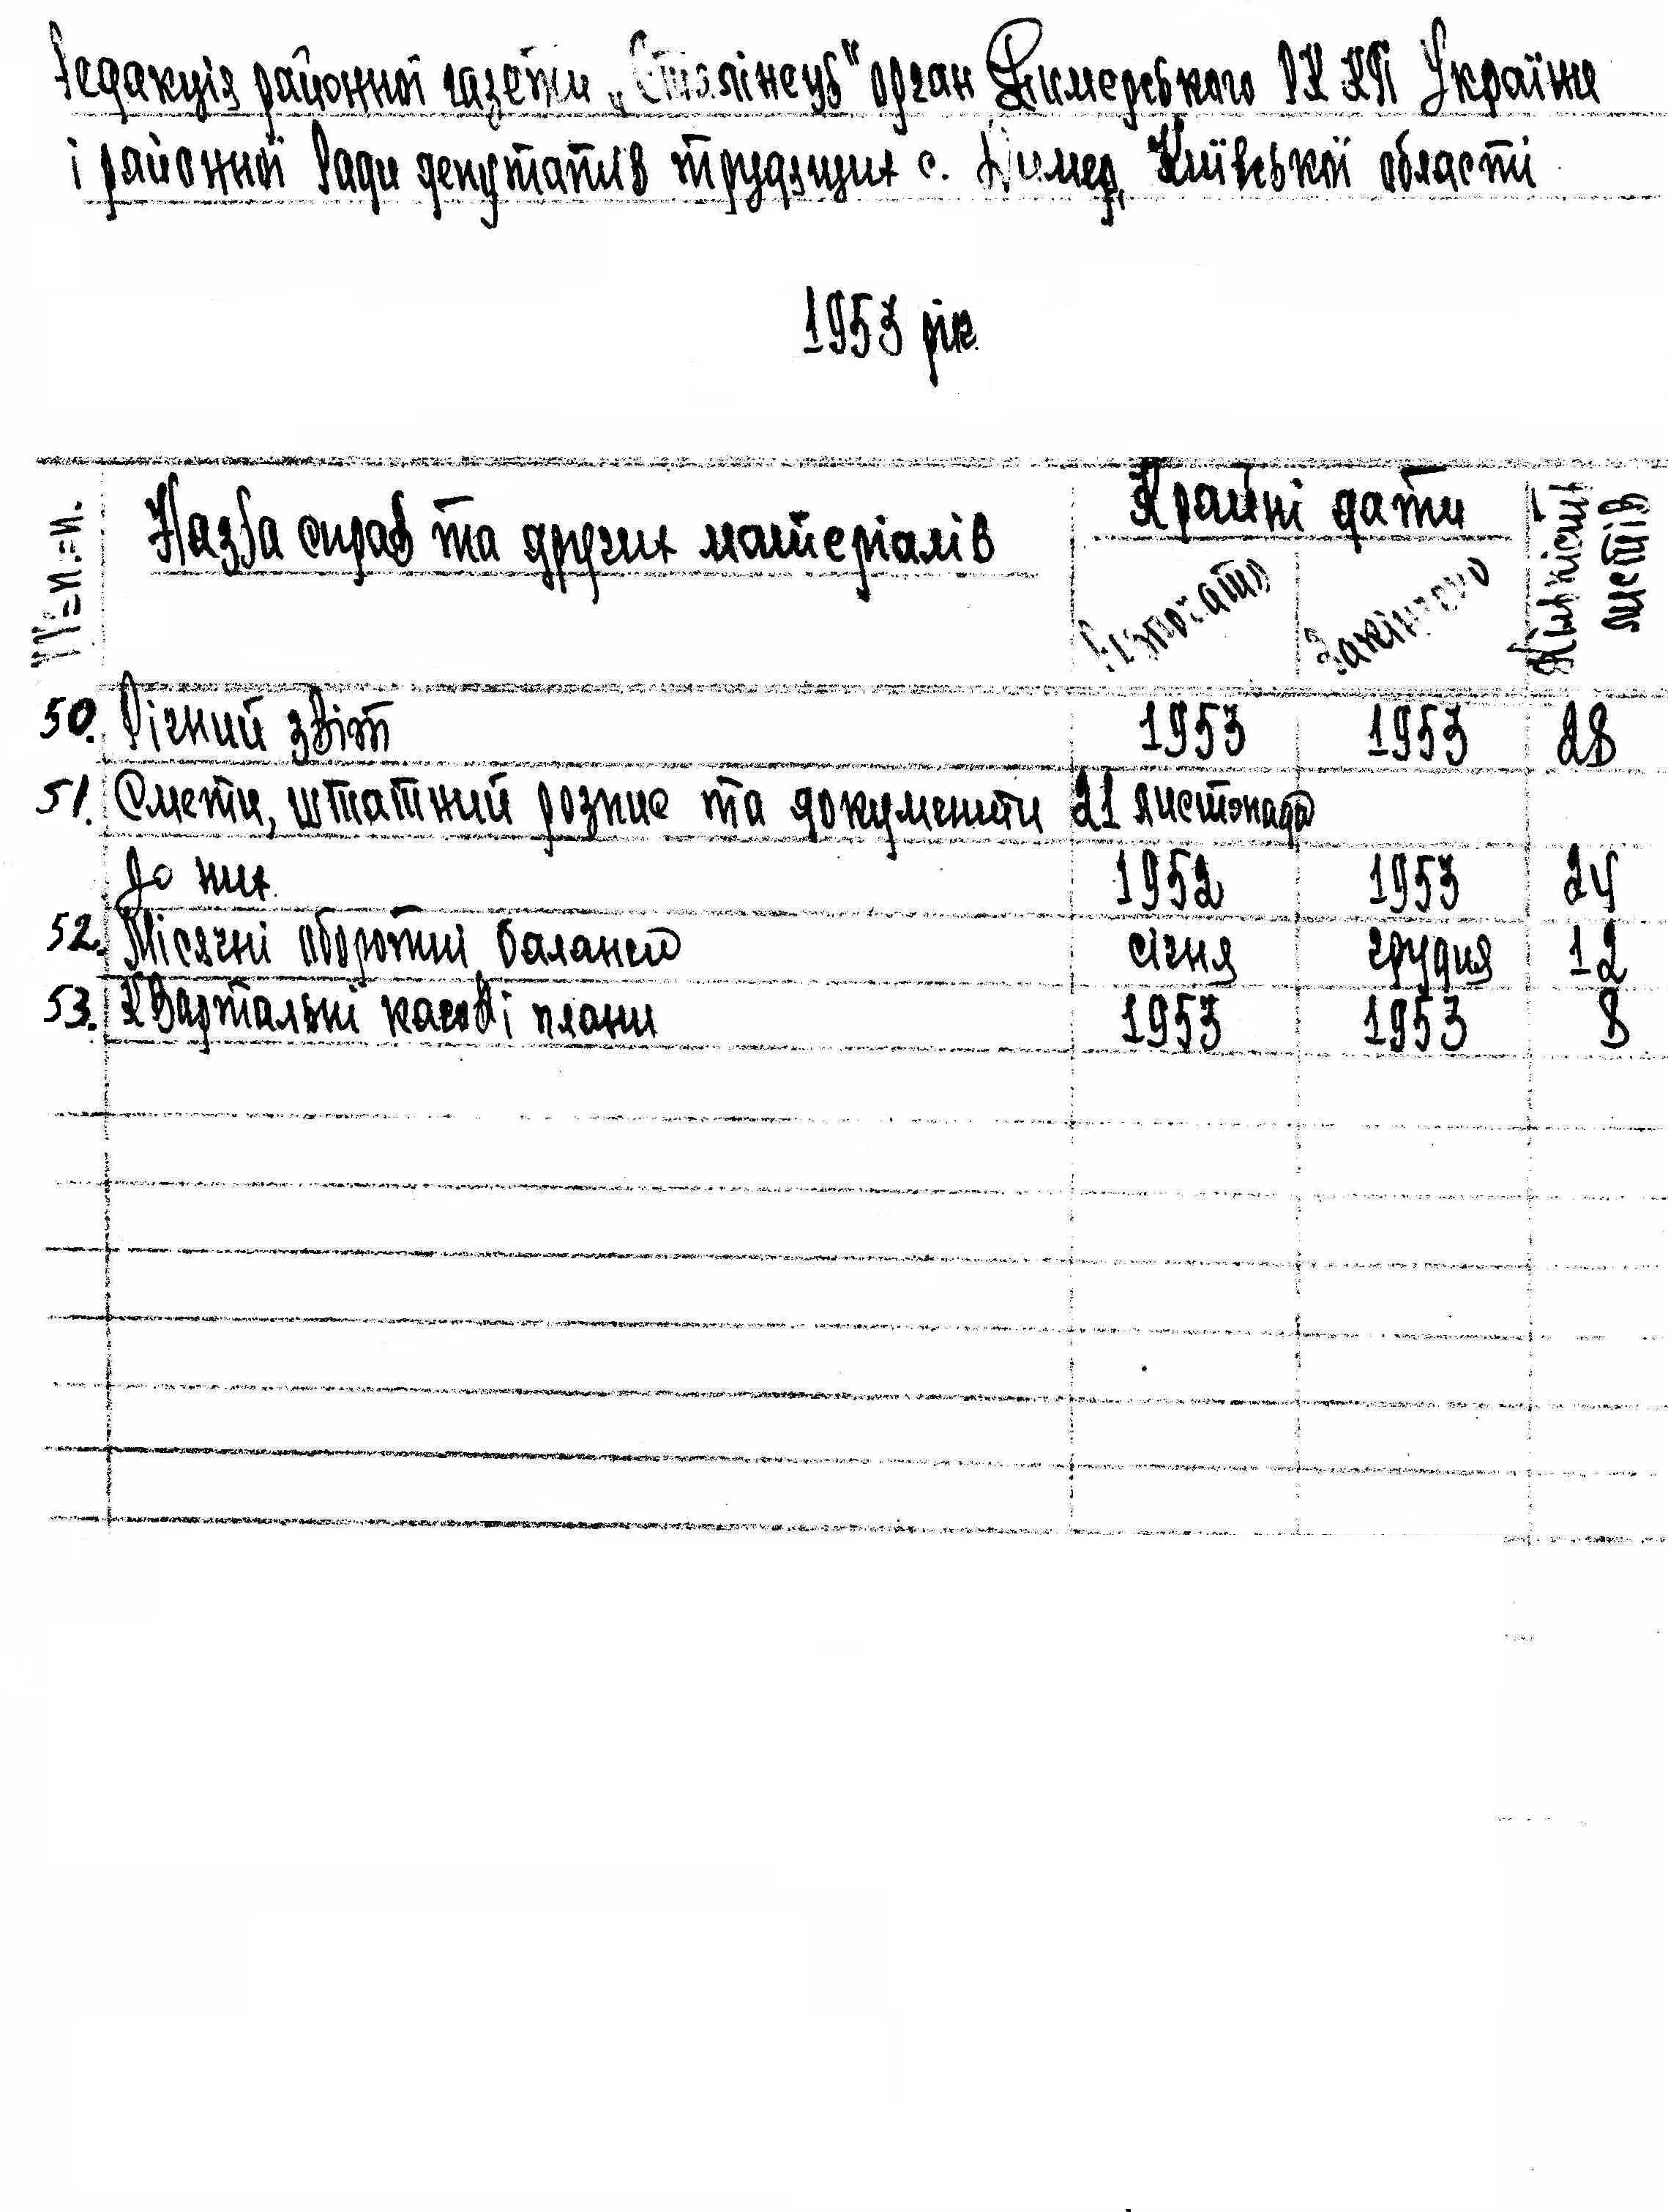 Редакція районної газети „Сталінець" орган Димерського РК КП України
і районної Ради депутатів трудящих с. Димер, Київської області
1953 рік
№№ п.=п. Назва справ та других матеріалів Крайні дати Кількість листів
Розпочато Закінчено
50. Річний звіт 1953 1953 28
51. Смети, штатний розпис та документи 21 листопада
до них. 1952 1953 24
52. Місячні оборотні баланси січня грудня 12
53. Квартальні касові плани 1953 1953 8